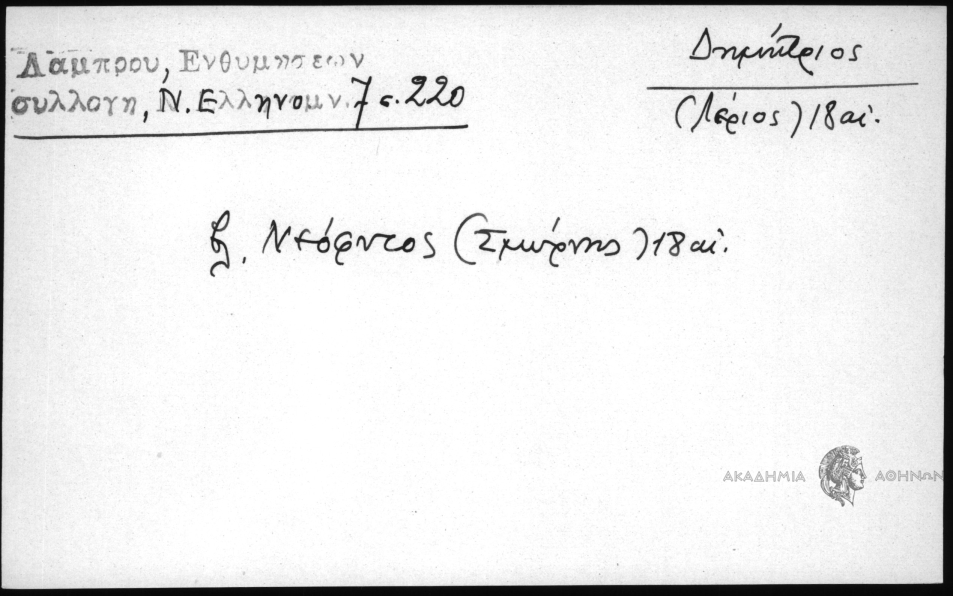 Λάμπρου, Ενθυμησεων
συλλογη, Ν. Ελληνομν. 7 σ. 220
Δημήτριος
(Λέριος) 18 αἰ.
βλ. Ντόρντος (Σμύρνης) 18 αἰ.
ΑΚΑΔΗΜΙΑ ΑΘΗΝΩΝ